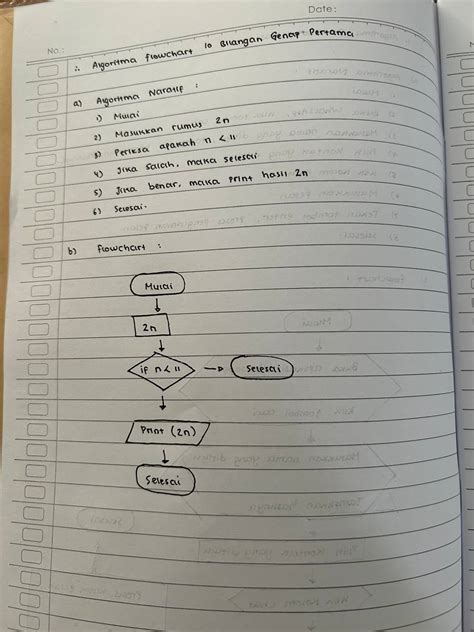 Date:
No.:
∴ Algoritma flowchart 10 Bilangan Genap Pertama
a) Algoritma Naratif :
1) Mulai
2) Masukkan rumus 2n
3) Periksa apakah n < 11
4) Jika salah, maka selesai
5) Jika benar, maka print hasil 2n
6) Selesai.
b) flowchart :
Mulai
2n
if n < 11
Selesai
Print (2n)
Selesai